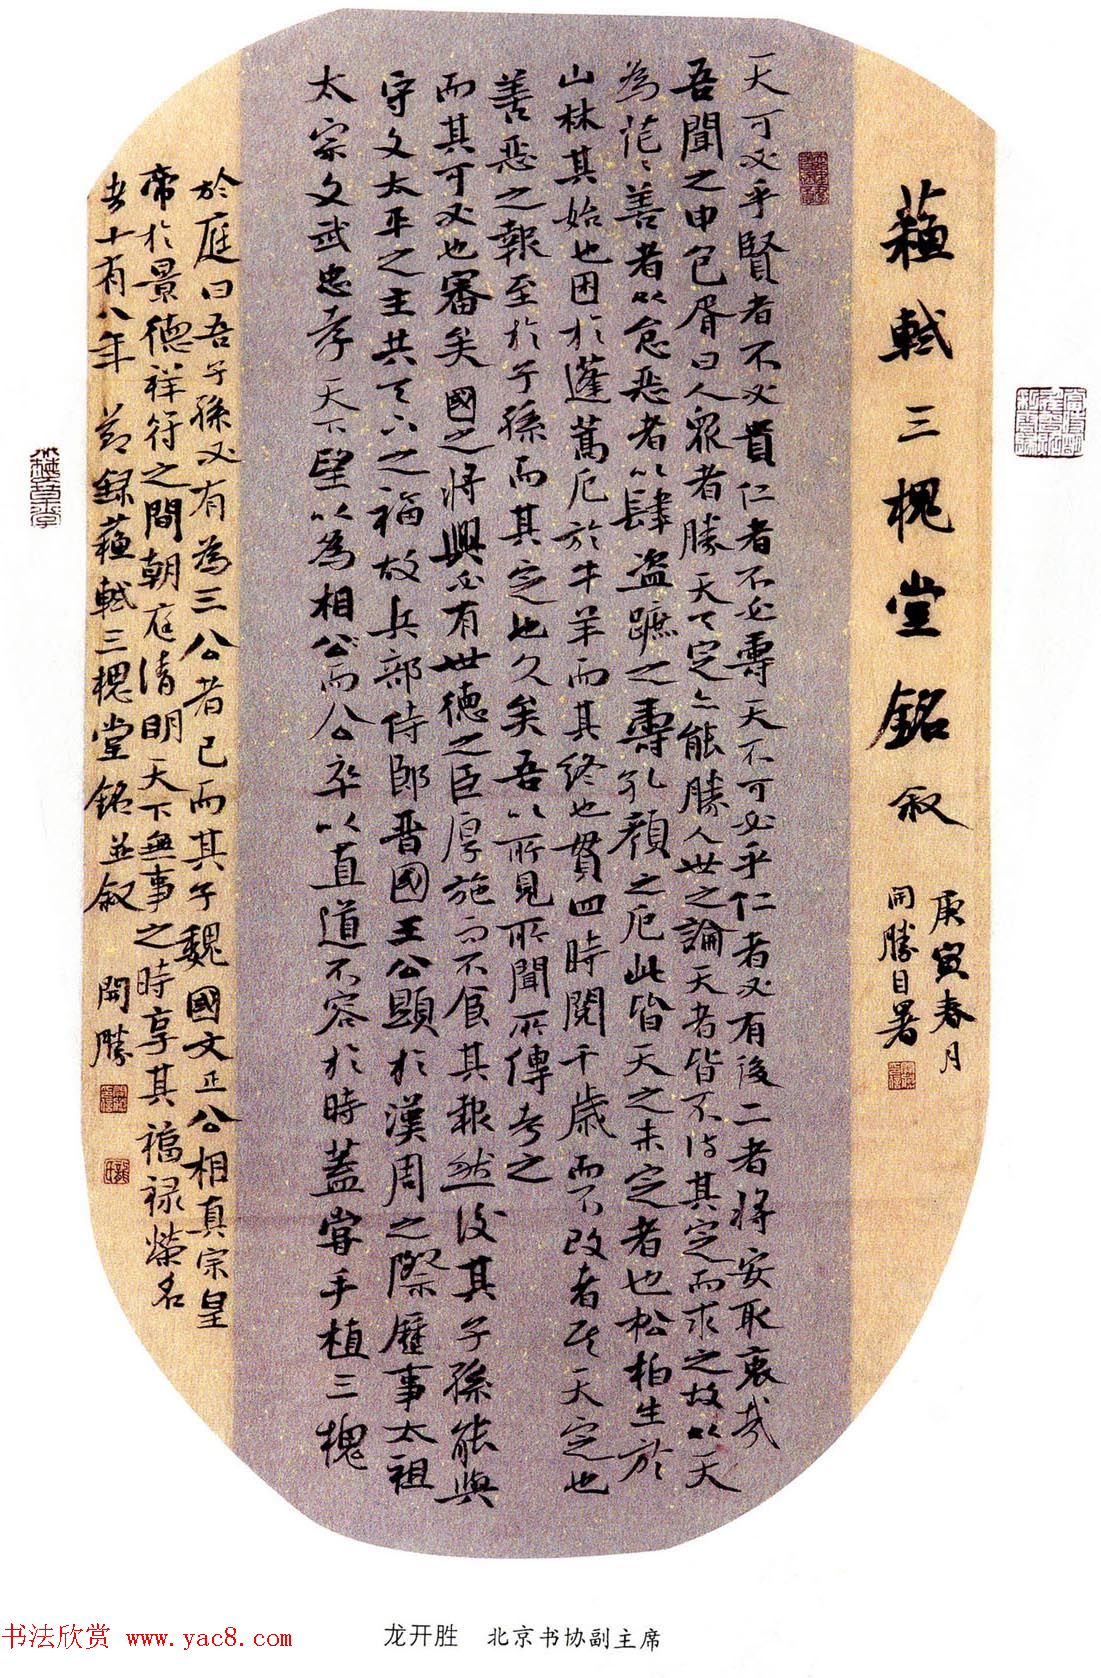 蘓軾三槐堂銘叙
庚寅春月
開勝自署
天可必乎賢者不必貴仁者不必壽天不可必乎仁者必有後二者將安取衷哉
吾聞之申包胥曰人眾者勝天天定亦能勝人世之論天者皆不待其定而求之故以天
為茫〻善者以怠惡者以肆盜蹠之壽孔顏之厄此皆天之未定者也松柏生於
山林其始也困於蓬蒿厄於牛羊而其終也貫四時閱千歲而不改者其天定也
善惡之報至於子孫而其定也久矣吾以所見所聞所傳考之
而其可必也審矣國之將興必有世德之臣厚施而不食其報然後其子孫能與
守文太平之主共天下之福故兵部侍郎晉國王公顯於漢周之際歷事太祖
太宗文武忠孝天下望以為相公而公卒以直道不容於時蓋嘗手植三槐
於庭曰吾子孫必有為三公者已而其子魏國文正公相真宗皇
帝於景德祥符之間朝庭清明天下無事之時享其福祿榮名
者十有八年 節錄蘓軾三槐堂銘並叙 開勝
龙开胜 北京书协副主席
书法欣赏 www.yac8.com